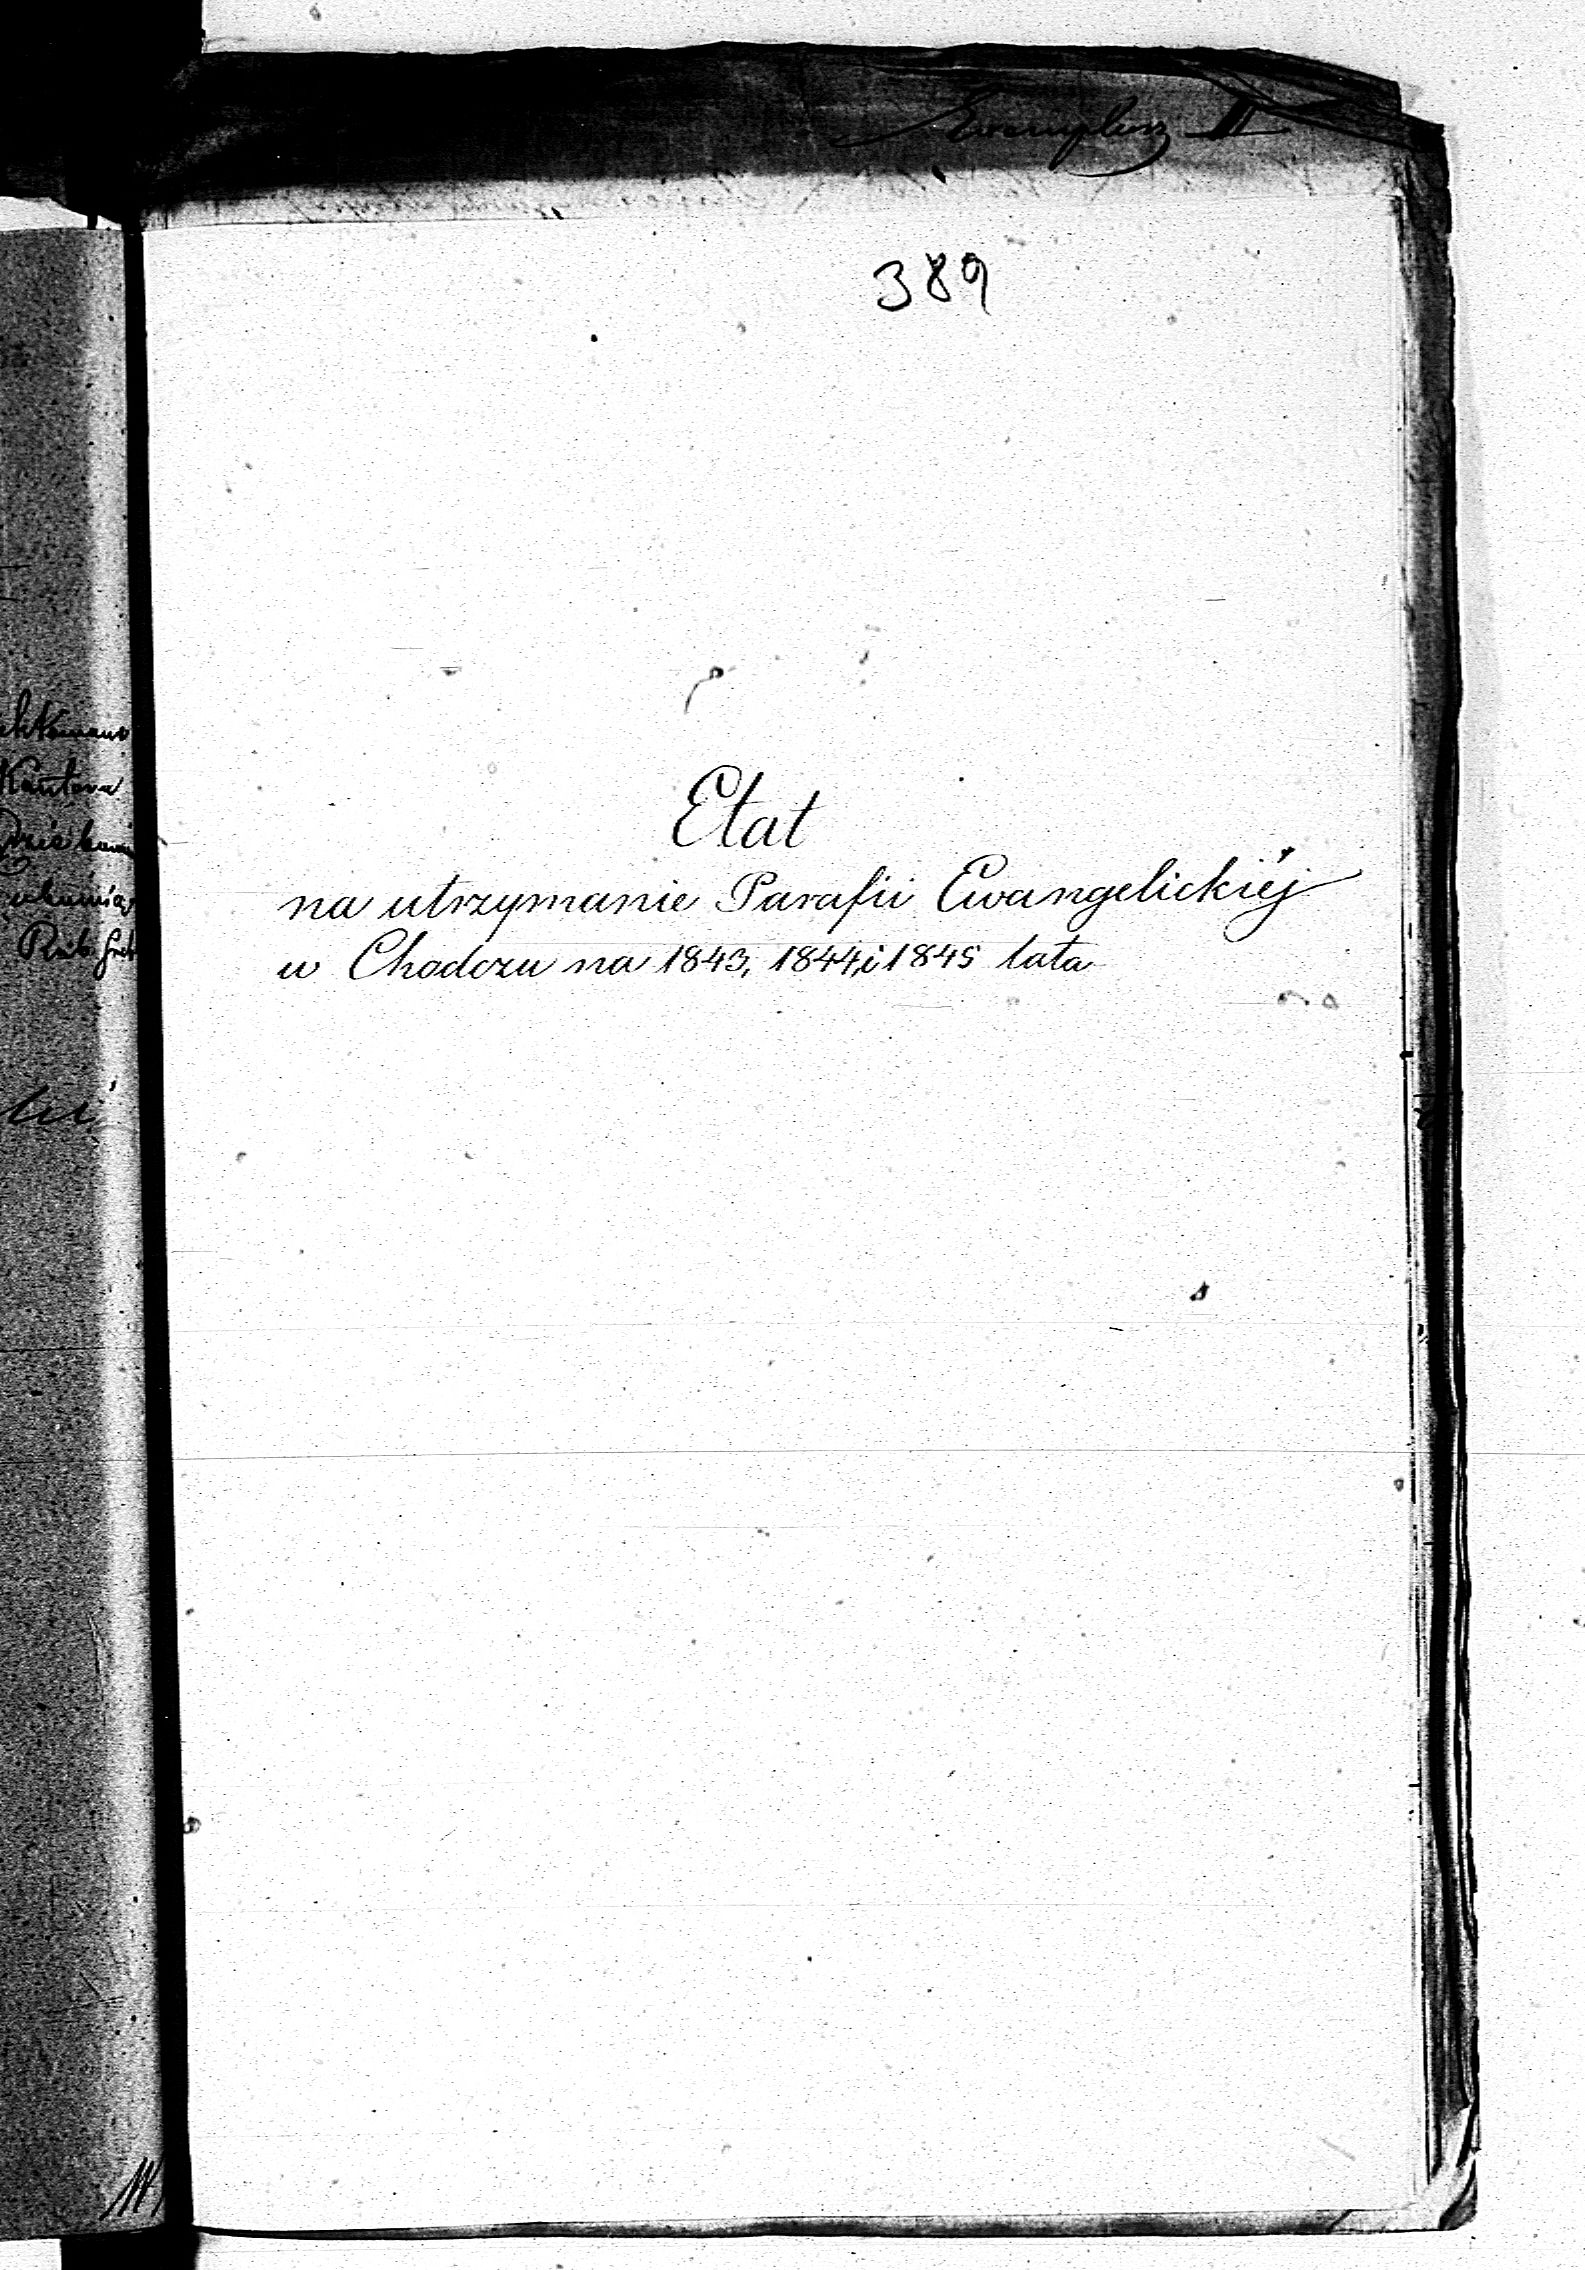 Exemplarz II
389
Etat
na utrzymanie Parafii Ewangelickiéj
w Chodczu na 1843, 1844, i 1845 lata
Kantora